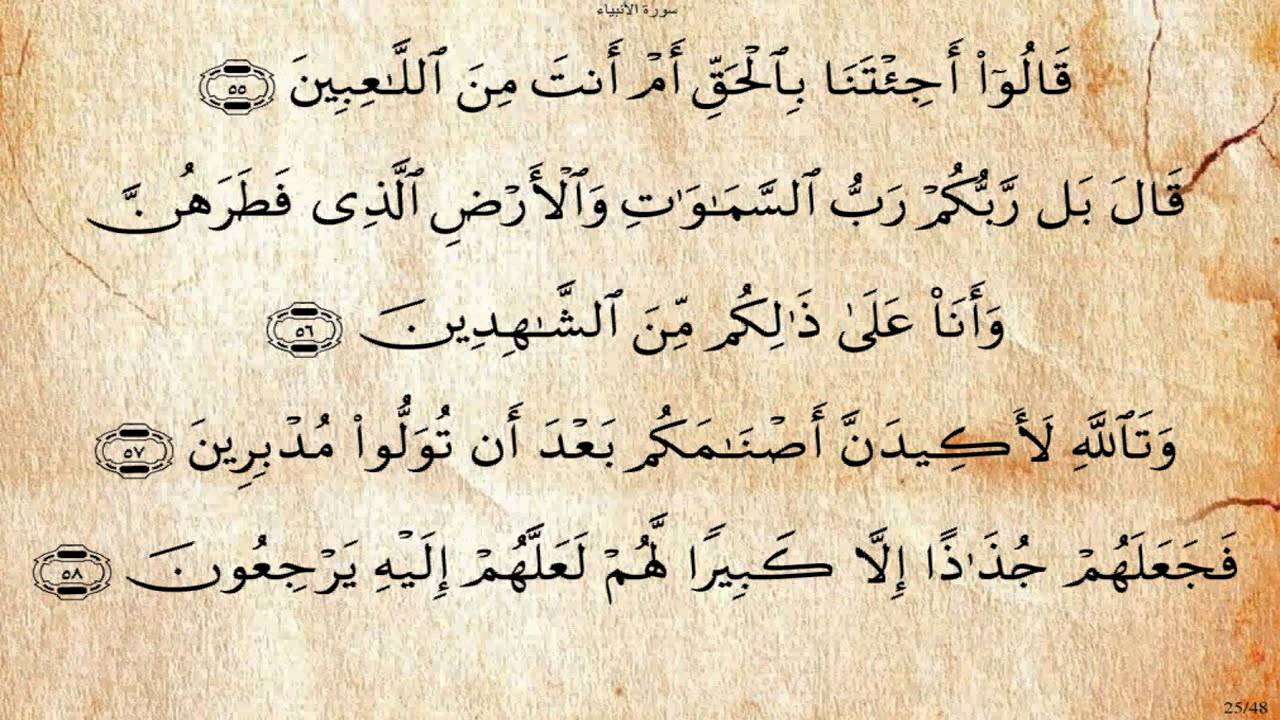 سورة الأنبياء
قَالُوٓا۟ أَجِئْتَنَا بِٱلْحَقِّ أَمْ أَنتَ مِنَ ٱللَّـٰعِبِينَ ٥٥
قَالَ بَل رَّبُّكُمْ رَبُّ ٱلسَّمَـٰوَٰتِ وَٱلْأَرْضِ ٱلَّذِى فَطَرَهُنَّ
وَأَنَا۠ عَلَىٰ ذَٰلِكُم مِّنَ ٱلشَّـٰهِدِينَ ٥٦
وَتَٱللَّهِ لَأَكِيدَنَّ أَصْنَـٰمَكُم بَعْدَ أَن تُوَلُّوا۟ مُدْبِرِينَ ٥٧
فَجَعَلَهُمْ جُذَٰذًا إِلَّا كَبِيرًا لَّهُمْ لَعَلَّهُمْ إِلَيْهِ يَرْجِعُونَ ٥٨
25/48